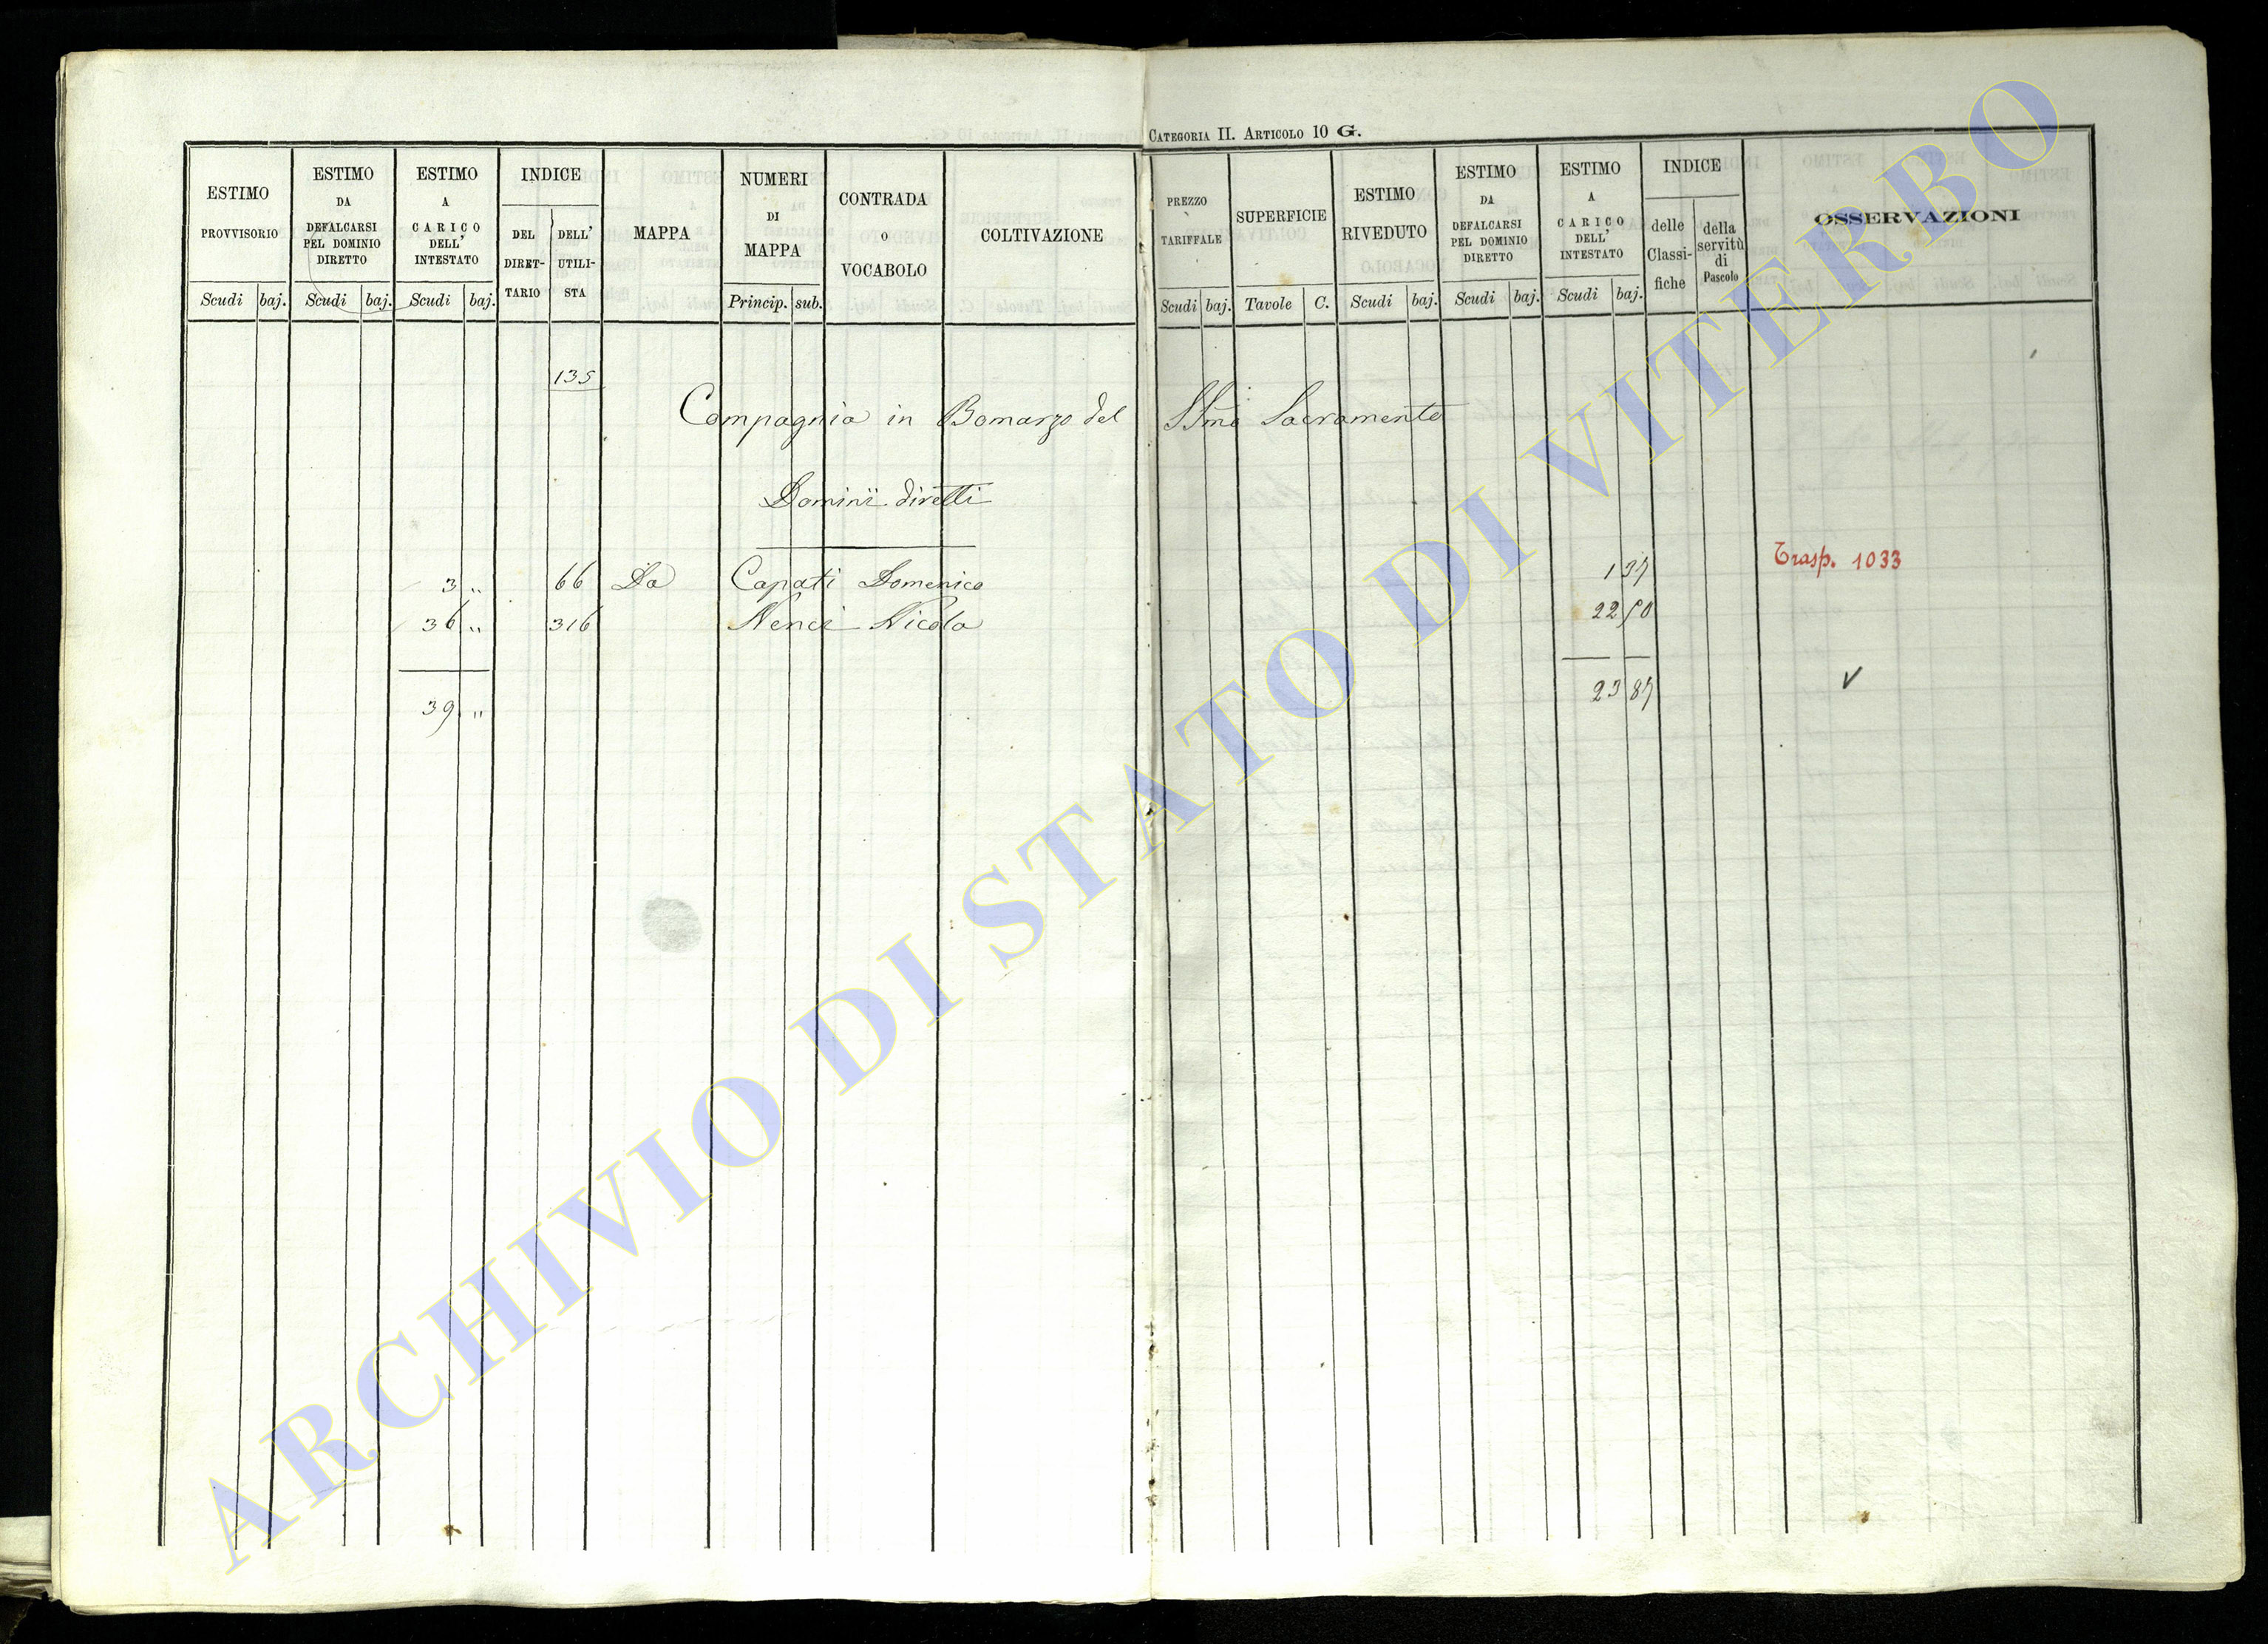 CATEGORIA II. ARTICOLO 10 G.
ESTIMO PROVVISORIO Scudi baj.
ESTIMO DA DEFALCARSI PEL DOMINIO DIRETTO Scudi baj.
ESTIMO A CARICO DELL' INTESTATO Scudi baj.
INDICE DEL DIRET-TARIO DELL' UTILI-STA
MAPPA
NUMERI DI MAPPA Princip. sub.
CONTRADA O VOCABOLO
COLTIVAZIONE
PREZZO TARIFFALE Scudi baj.
SUPERFICIE Tavole C.
ESTIMO RIVEDUTO Scudi baj.
ESTIMO DA DEFALCARSI PEL DOMINIO DIRETTO Scudi baj.
ESTIMO A CARICO DELL' INTESTATO Scudi baj.
INDICE delle Classi-fiche della servitù di Pascolo
OSSERVAZIONI
135
Compagnia in Bomarzo del SSmo Sacramento
Dominii diretti
3 " 66 Da Capati Domenico 1 37 Trasp. 1033
36 " 316 Nenci Nicola 22 50
39 " 23 87
ARCHIVIO DI STATO DI VITERBO